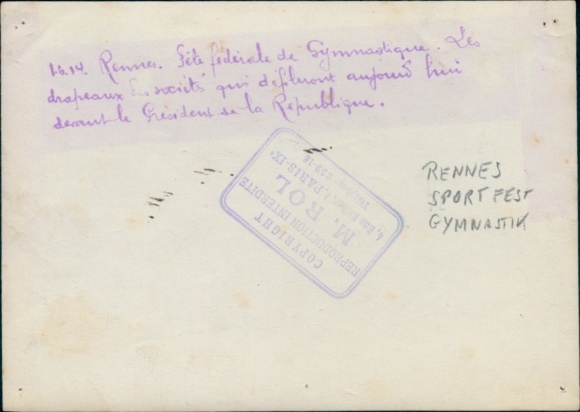 1.6.14. Rennes. Fête fédérale de Gymnastique. Les
drapeaux des sociétés qui défileront aujourd'hui
devant le Président de la République.
RENNES
SPORTFEST
GYMNASTIK
COPYRIGHT
REPRODUCTION INTERDITE
M. ROL
4, Rue PARIS-IXe